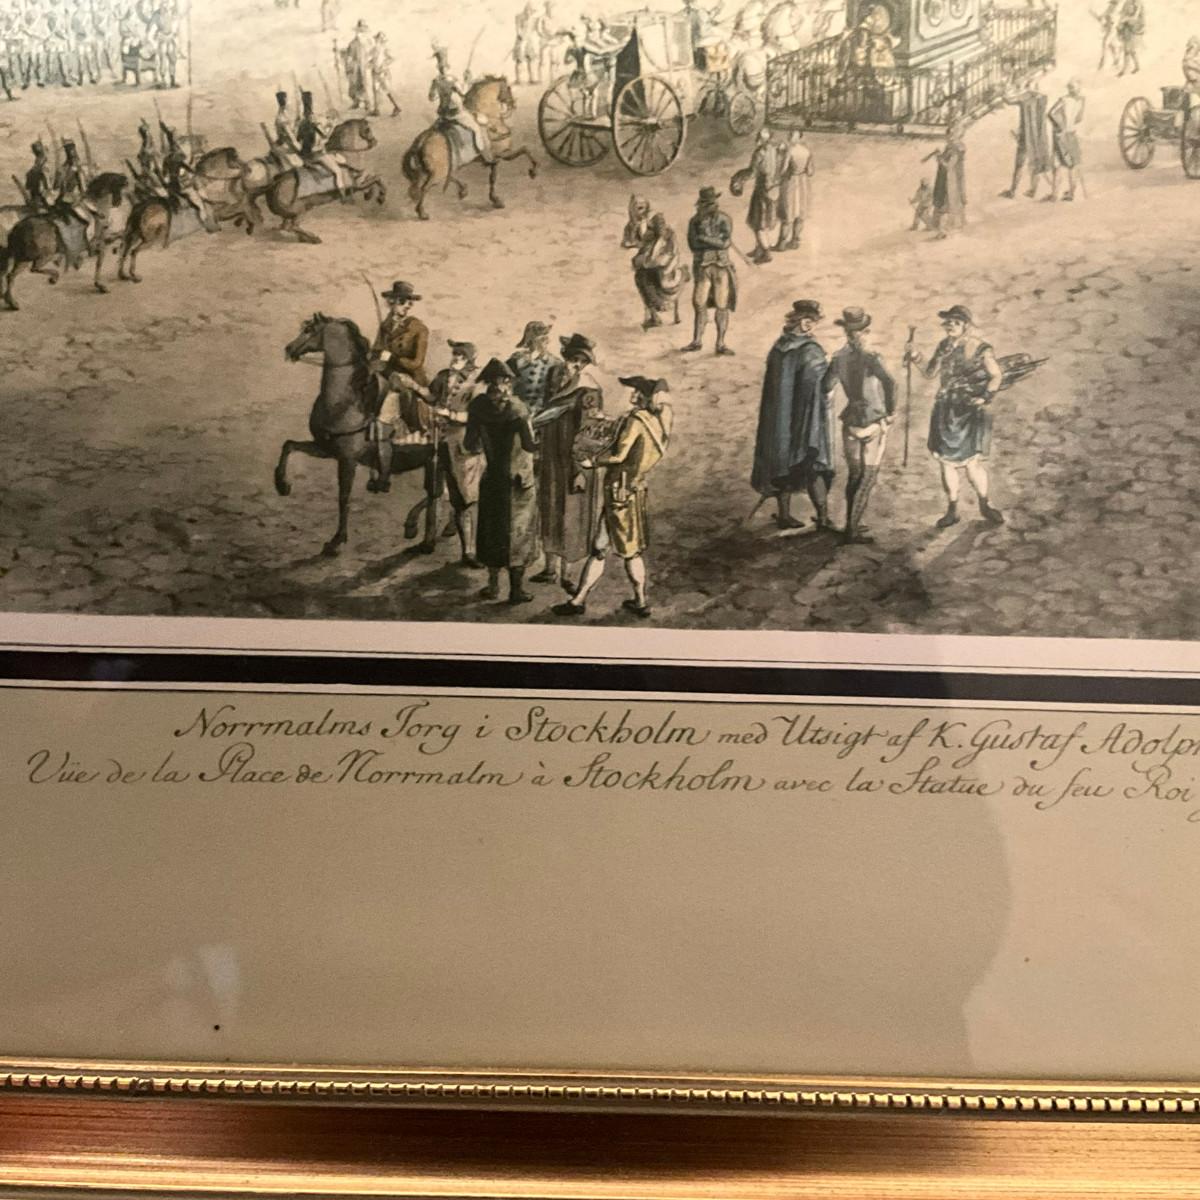 Norrmalms Torg i Stockholm med Utsigt af K. Gustaf Adolph
Vüe de la Place de Norrmalm à Stockholm avec la Statue du feu Roi